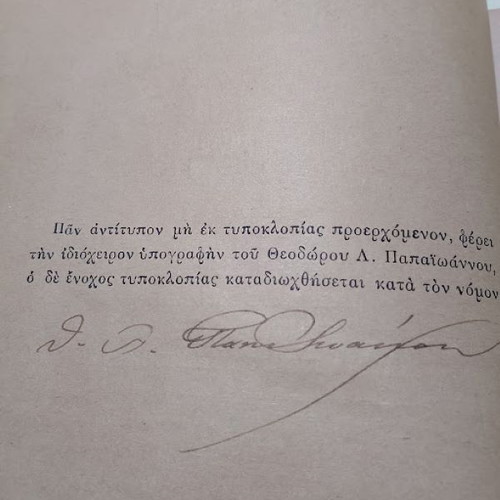 Πᾶν ἀντίτυπον μὴ ἐκ τυποκλοπίας προερχόμενον, φέρει
τὴν ἰδιόχειρον ὑπογραφὴν τοῦ Θεοδώρου Λ. Παπαϊωάννου,
ὁ δὲ ἔνοχος τυποκλοπίας καταδιωχθήσεται κατὰ τὸν νόμον